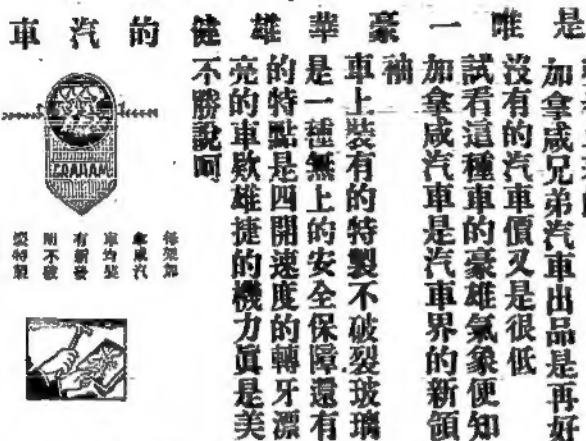 是唯一豪華雄健的汽車
加拿咸兄弟汽車出品是再好
沒有的汽車價又是很低
試看這種車的豪雄氣象便知
加拿咸汽車是汽車界的新領
袖
車上裝有的特製不破裂玻璃
是一種無上的安全保障還有
的特點是四開速度的轉牙漂
亮的車欵雄捷的機力眞是美
不勝說呵
GRAHAM
拿咸汽
車均裝
有新發
明不破
裂特製